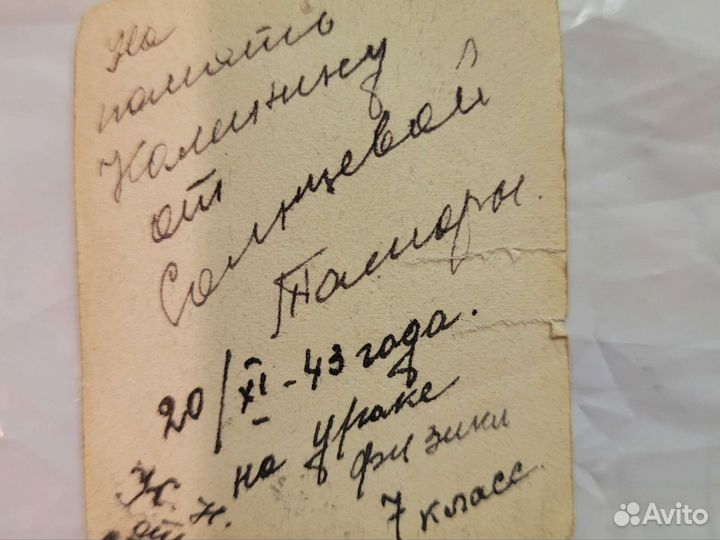 На
память
Калинину
от
Солнцевой
Тамары.
20/XI-43 года.
на уроке
физики
К. н.
от
7 класс.
Avito